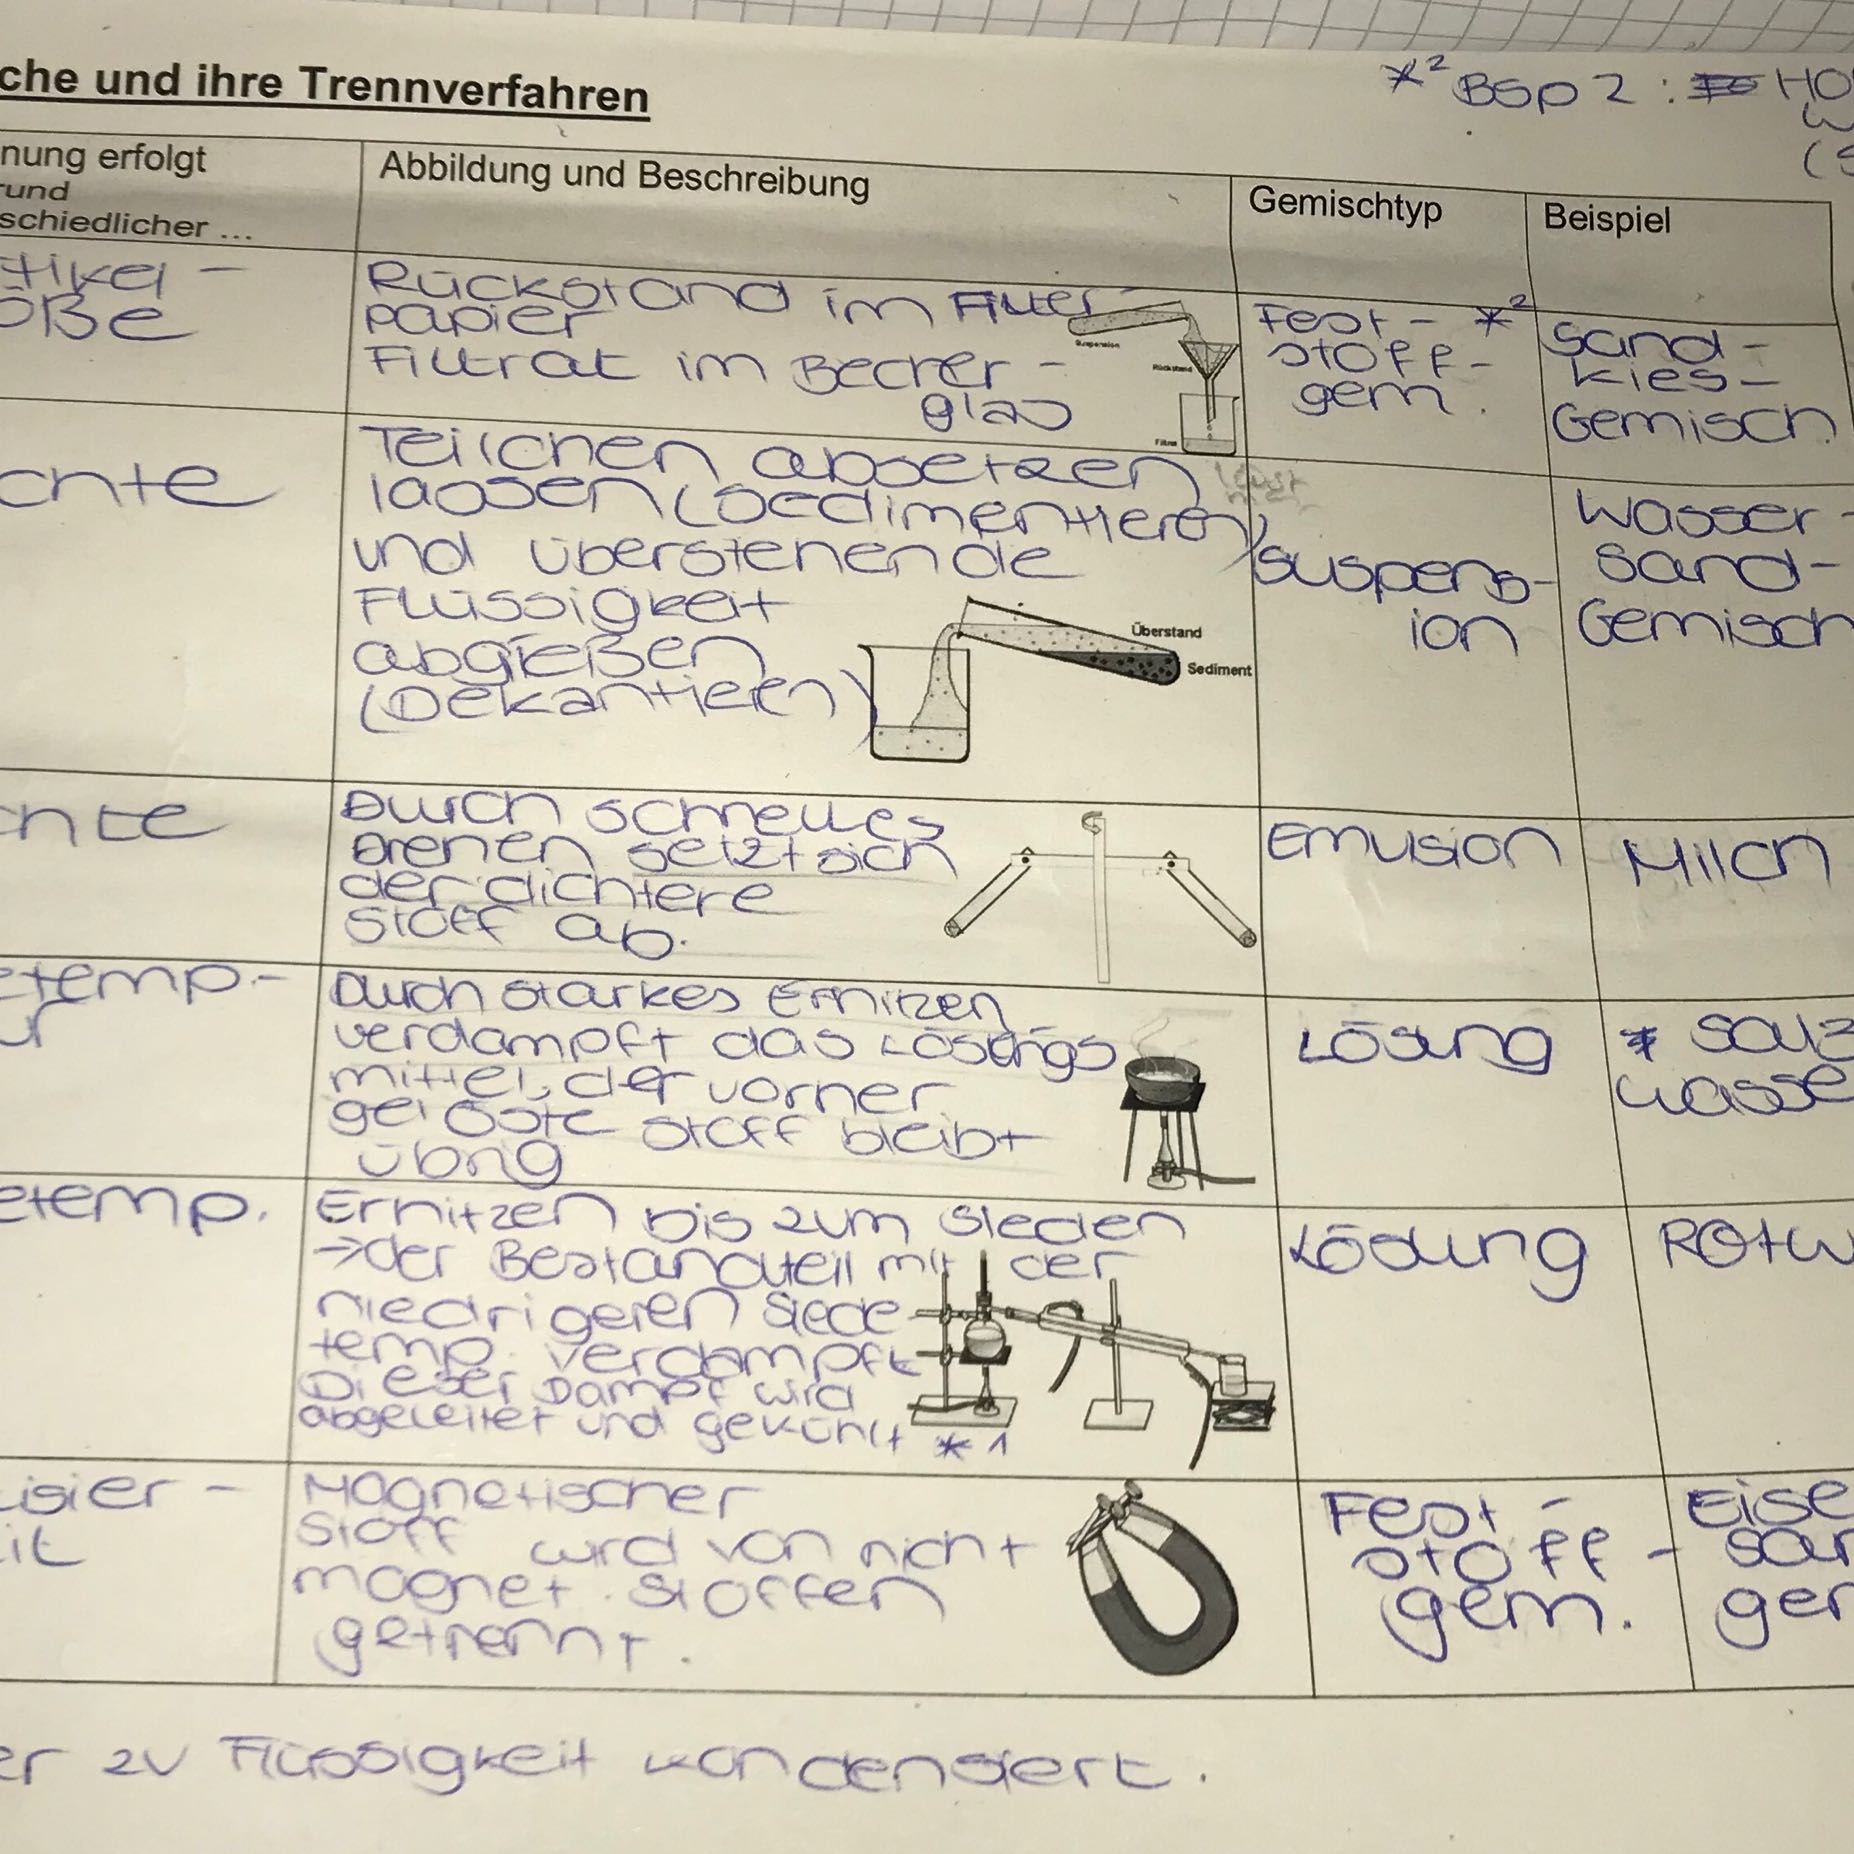 che und ihre Trennverfahren
*² BSP 2: HO
W
(S
nung erfolgt
rund
schiedlicher ...
Abbildung und Beschreibung
Gemischtyp
Beispiel
tikel-
öße
Rückstand im Filter-
papier
Filtrat im Becher-
glas
Suspension
Rückstand
Filtrat
Fest- *²
stoff-
gem.
Sand-
kies-
Gemisch
chte
Teilchen absetzen
lassen (Sedimentieren)
und überstehende
Flüssigkeit
abgießen
(Dekantieren)
Überstand
Sediment
Suspens-
ion
Wasser-
Sand-
Gemisch
hte
Durch schnelles
Drehen setzt sich
der dichtere
Stoff ab.
Emulsion
Milch
etemp.-
ur
Durch starkes Erhitzen
verdampft das Lösungs
mittel, der vorher
gelöste Stoff bleibt
übrig
Lösung
* Salz
wasse
etemp.
Erhitzen bis zum Sieden
→ der Bestandteil mit der
niedrigeren Siede
temp. verdampft
Dieser Dampf wird
abgeleitet und gekühlt *1
Lösung
Rotw
isier-
it
Magnetischer
Stoff wird von nicht
magnet. Stoffen
getrennt.
Fest-
stoff-
gem.
Eise
san
gem
er zu Flüssigkeit kondensiert.